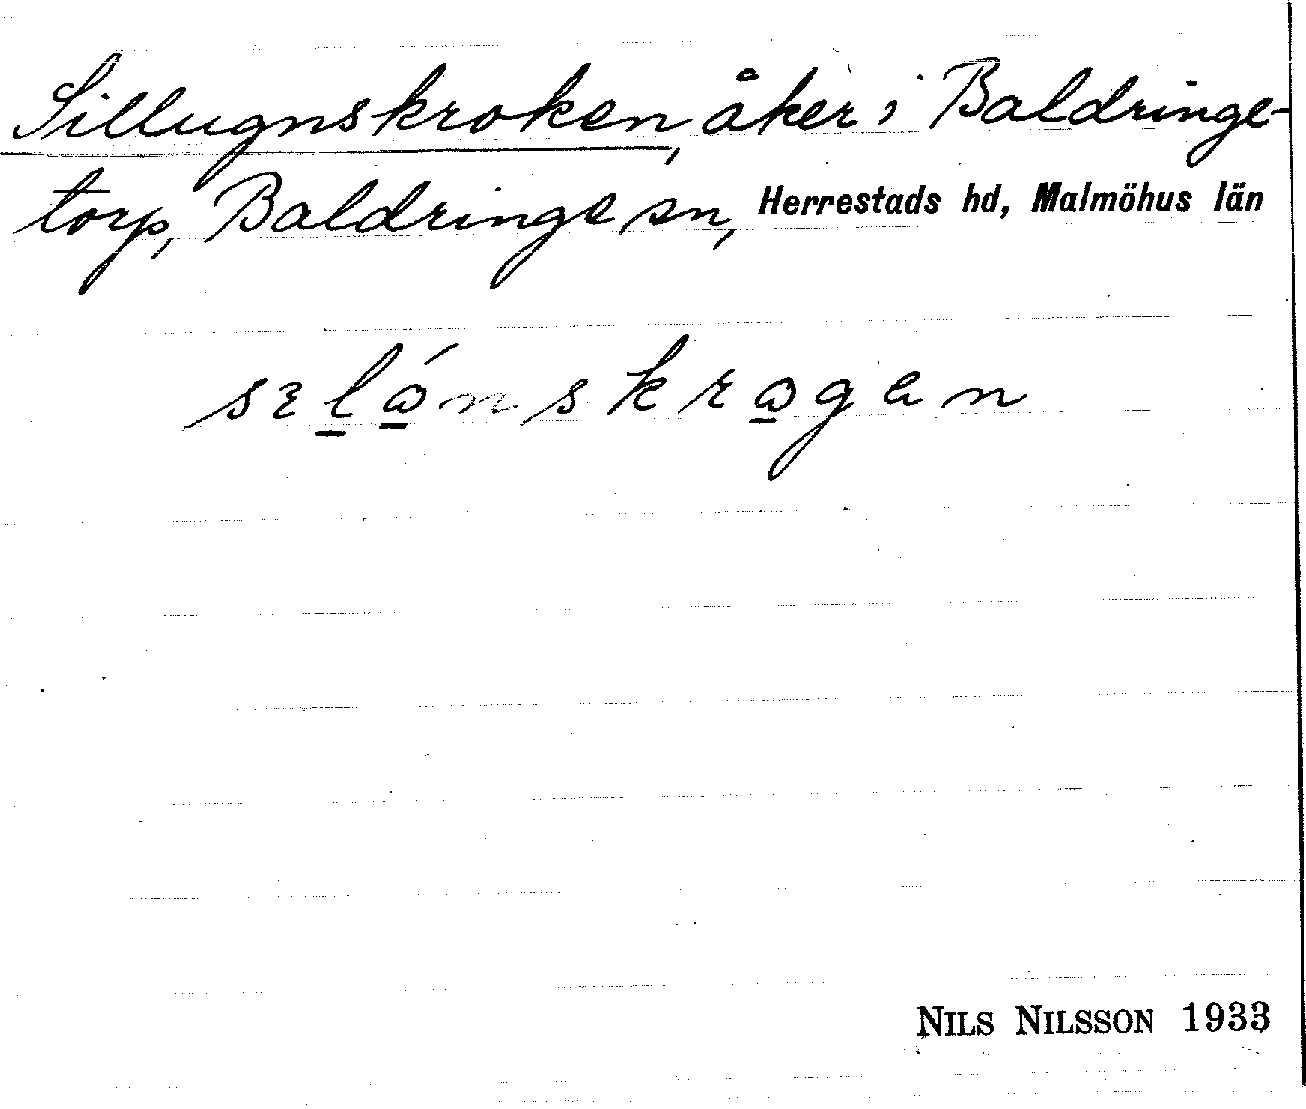 Sillugnskroken, åker i Baldringe-
torp, Baldringe sn, Herrestads hd, Malmöhus län
sɛl̲ώ̲nskrω̲gen
NILS NILSSON 1933